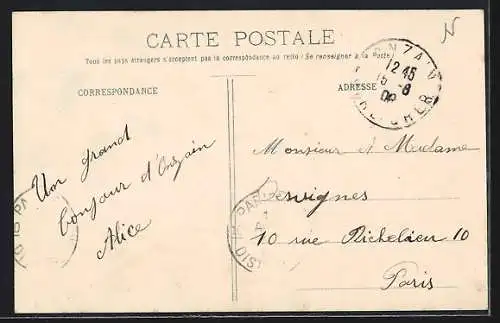 CARTE POSTALE
Tous les pays étrangers n'acceptent pas la correspondance au recto (Se renseigner à la Poste)
CORRESPONDANCE
ADRESSE
ONZAIN
12 45
15 - 8
LOIR-ET-CHER
Un grand
bonjour d'Onzain
Alice
Monsieur et Madame
10 rue Richelieu 10
Paris
PARIS
DIST